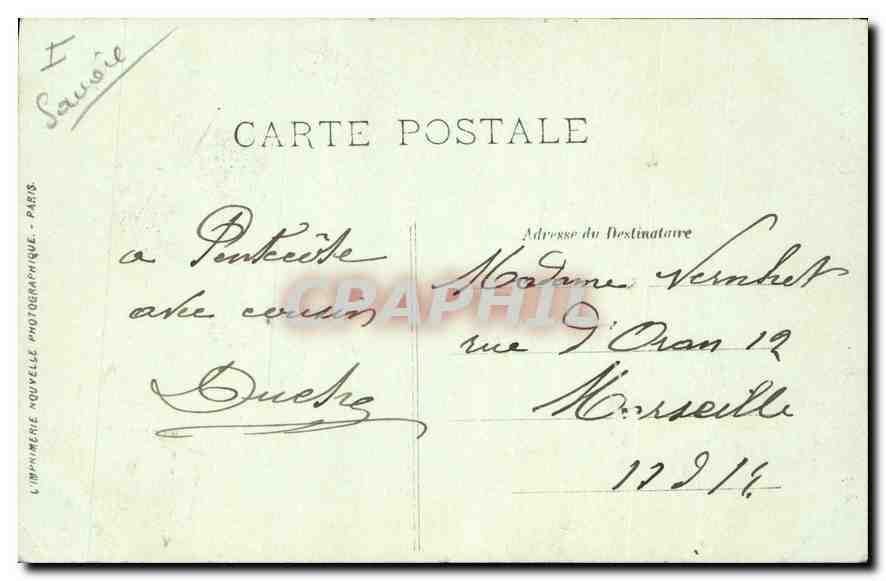 I
Savoie
CARTE POSTALE
L'IMPRIMERIE NOUVELLE PHOTOGRAPHIQUE. - PARIS.
a Pentecôte
avec cousin
Adresse du Destinataire
Madame Vernhet
rue d'Oran 12
Marseille
CPARHIL